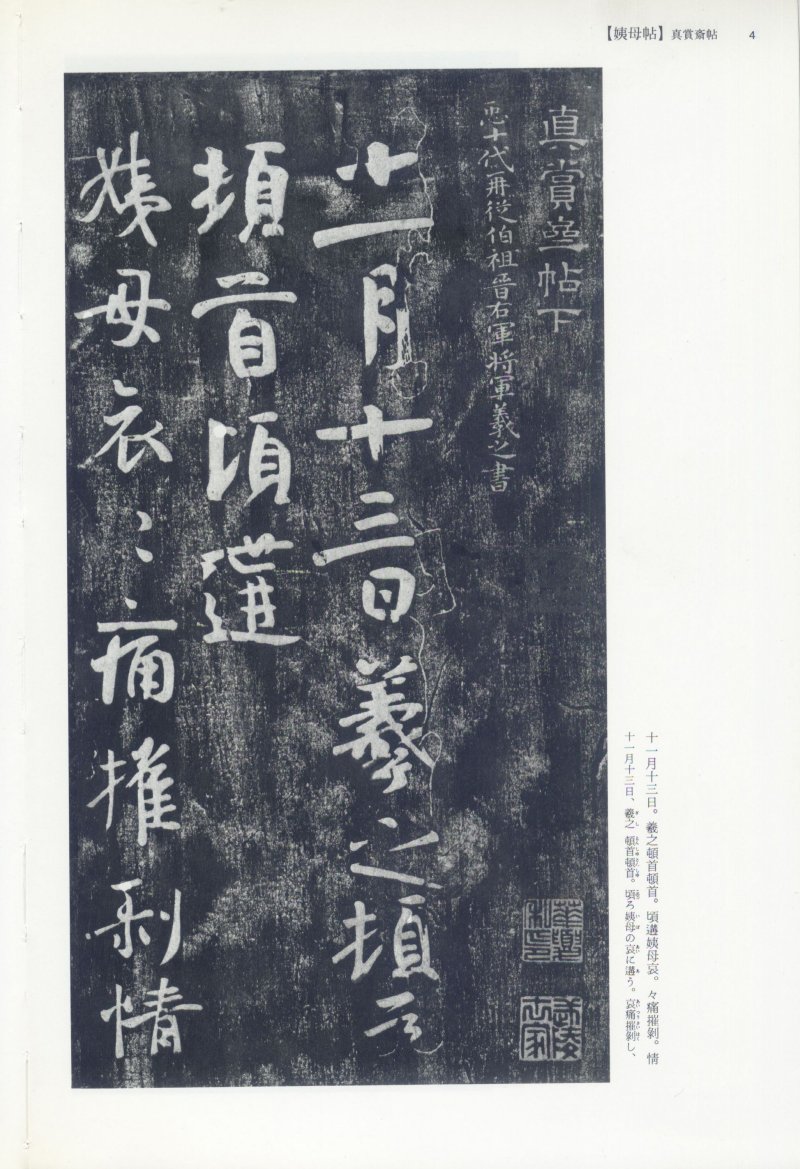 【姨母帖】真賞斎帖 4
真賞齋帖下
𢘑十代再從伯祖晉右軍將軍羲之書
十一月十三日羲之頓首
頓首頃遘
姨母哀〻痛摧剝情
十一月十三日。羲之頓首頓首。頃遘姨母哀。々痛摧剝。情
十一月十三日、羲之頓首頓首。頃ろ姨母の哀に遘う。哀痛摧剝し、